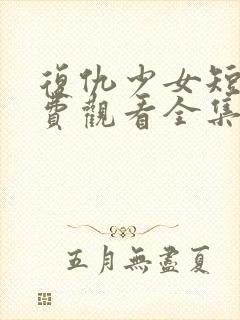 復仇少女短
費觀看全集
五月無盡夏